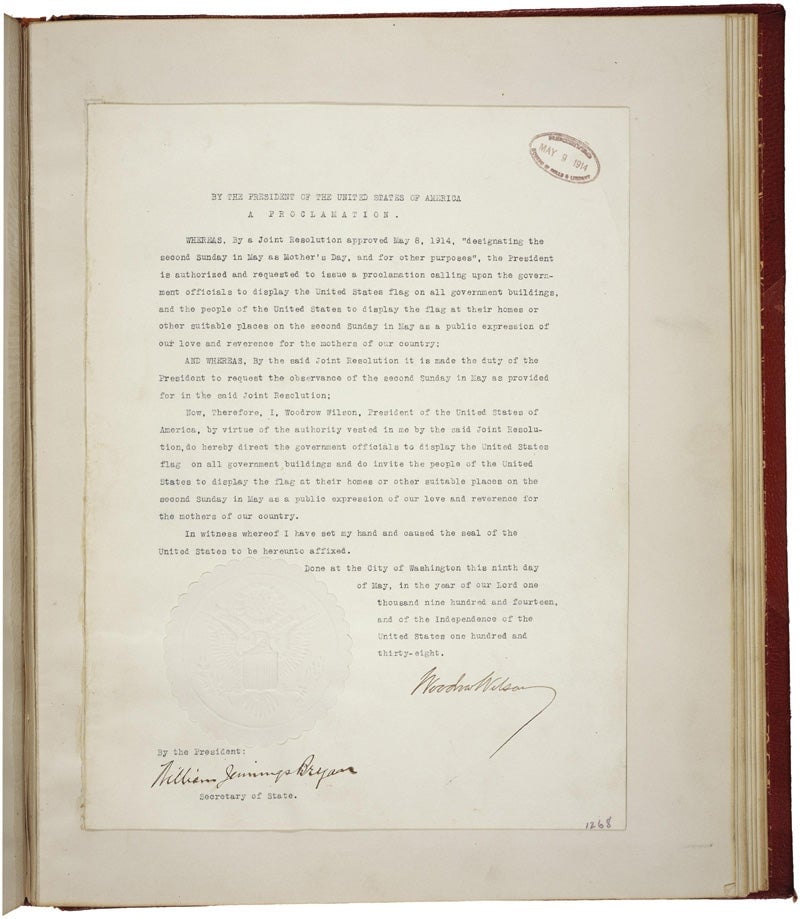 RECEIVED
MAY 9 1914
BUREAU OF ROLLS & LIBRARY
BY THE PRESIDENT OF THE UNITED STATES OF AMERICA
A PROCLAMATION.
WHEREAS, By a Joint Resolution approved May 8, 1914, "designating the
second Sunday in May as Mother's Day, and for other purposes", the President
is authorized and requested to issue a proclamation calling upon the govern-
ment officials to display the United States flag on all government buildings,
and the people of the United States to display the flag at their homes or
other suitable places on the second Sunday in May as a public expression of
our love and reverence for the mothers of our country;
AND WHEREAS, By the said Joint Resolution it is made the duty of the
President to request the observance of the second Sunday in May as provided
for in the said Joint Resolution;
Now, Therefore, I, Woodrow Wilson, President of the United States of
America, by virtue of the authority vested in me by the said Joint Resolu-
tion,do hereby direct the government officials to display the United States
flag on all government buildings and do invite the people of the United
States to display the flag at their homes or other suitable places on the
second Sunday in May as a public expression of our love and reverence for
the mothers of our country.
In witness whereof I have set my hand and caused the seal of the
United States to be hereunto affixed.
Done at the City of Washington this ninth day
of May, in the year of our Lord one
thousand nine hundred and fourteen,
and of the Independence of the
United States one hundred and
thirty-eight.
Woodrow Wilson
By the President:
William Jennings Bryan
Secretary of State.
1268